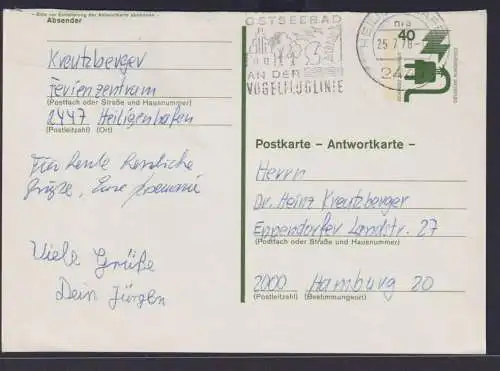 Bitte vor Einlieferung der Antwortkarte abtrennen
Absender
Kreutzberger
Ferienzentrum
(Postfach oder Straße und Hausnummer)
2447 Heiligenhafen
(Postleitzahl) (Ort)
Für heute herzliche
Grüße, Eure
Viele Grüße
Dein Jürgen
OSTSEEBAD
AN DER
VOGELFLUGLINIE
25.7.78
40
Postkarte – Antwortkarte –
Herrn
Dr. Heinz Kreutzberger
Eppendorfer Landstr. 27
(Postfach oder Straße und Hausnummer)
2000 Hamburg 20
(Postleitzahl) (Bestimmungsort)